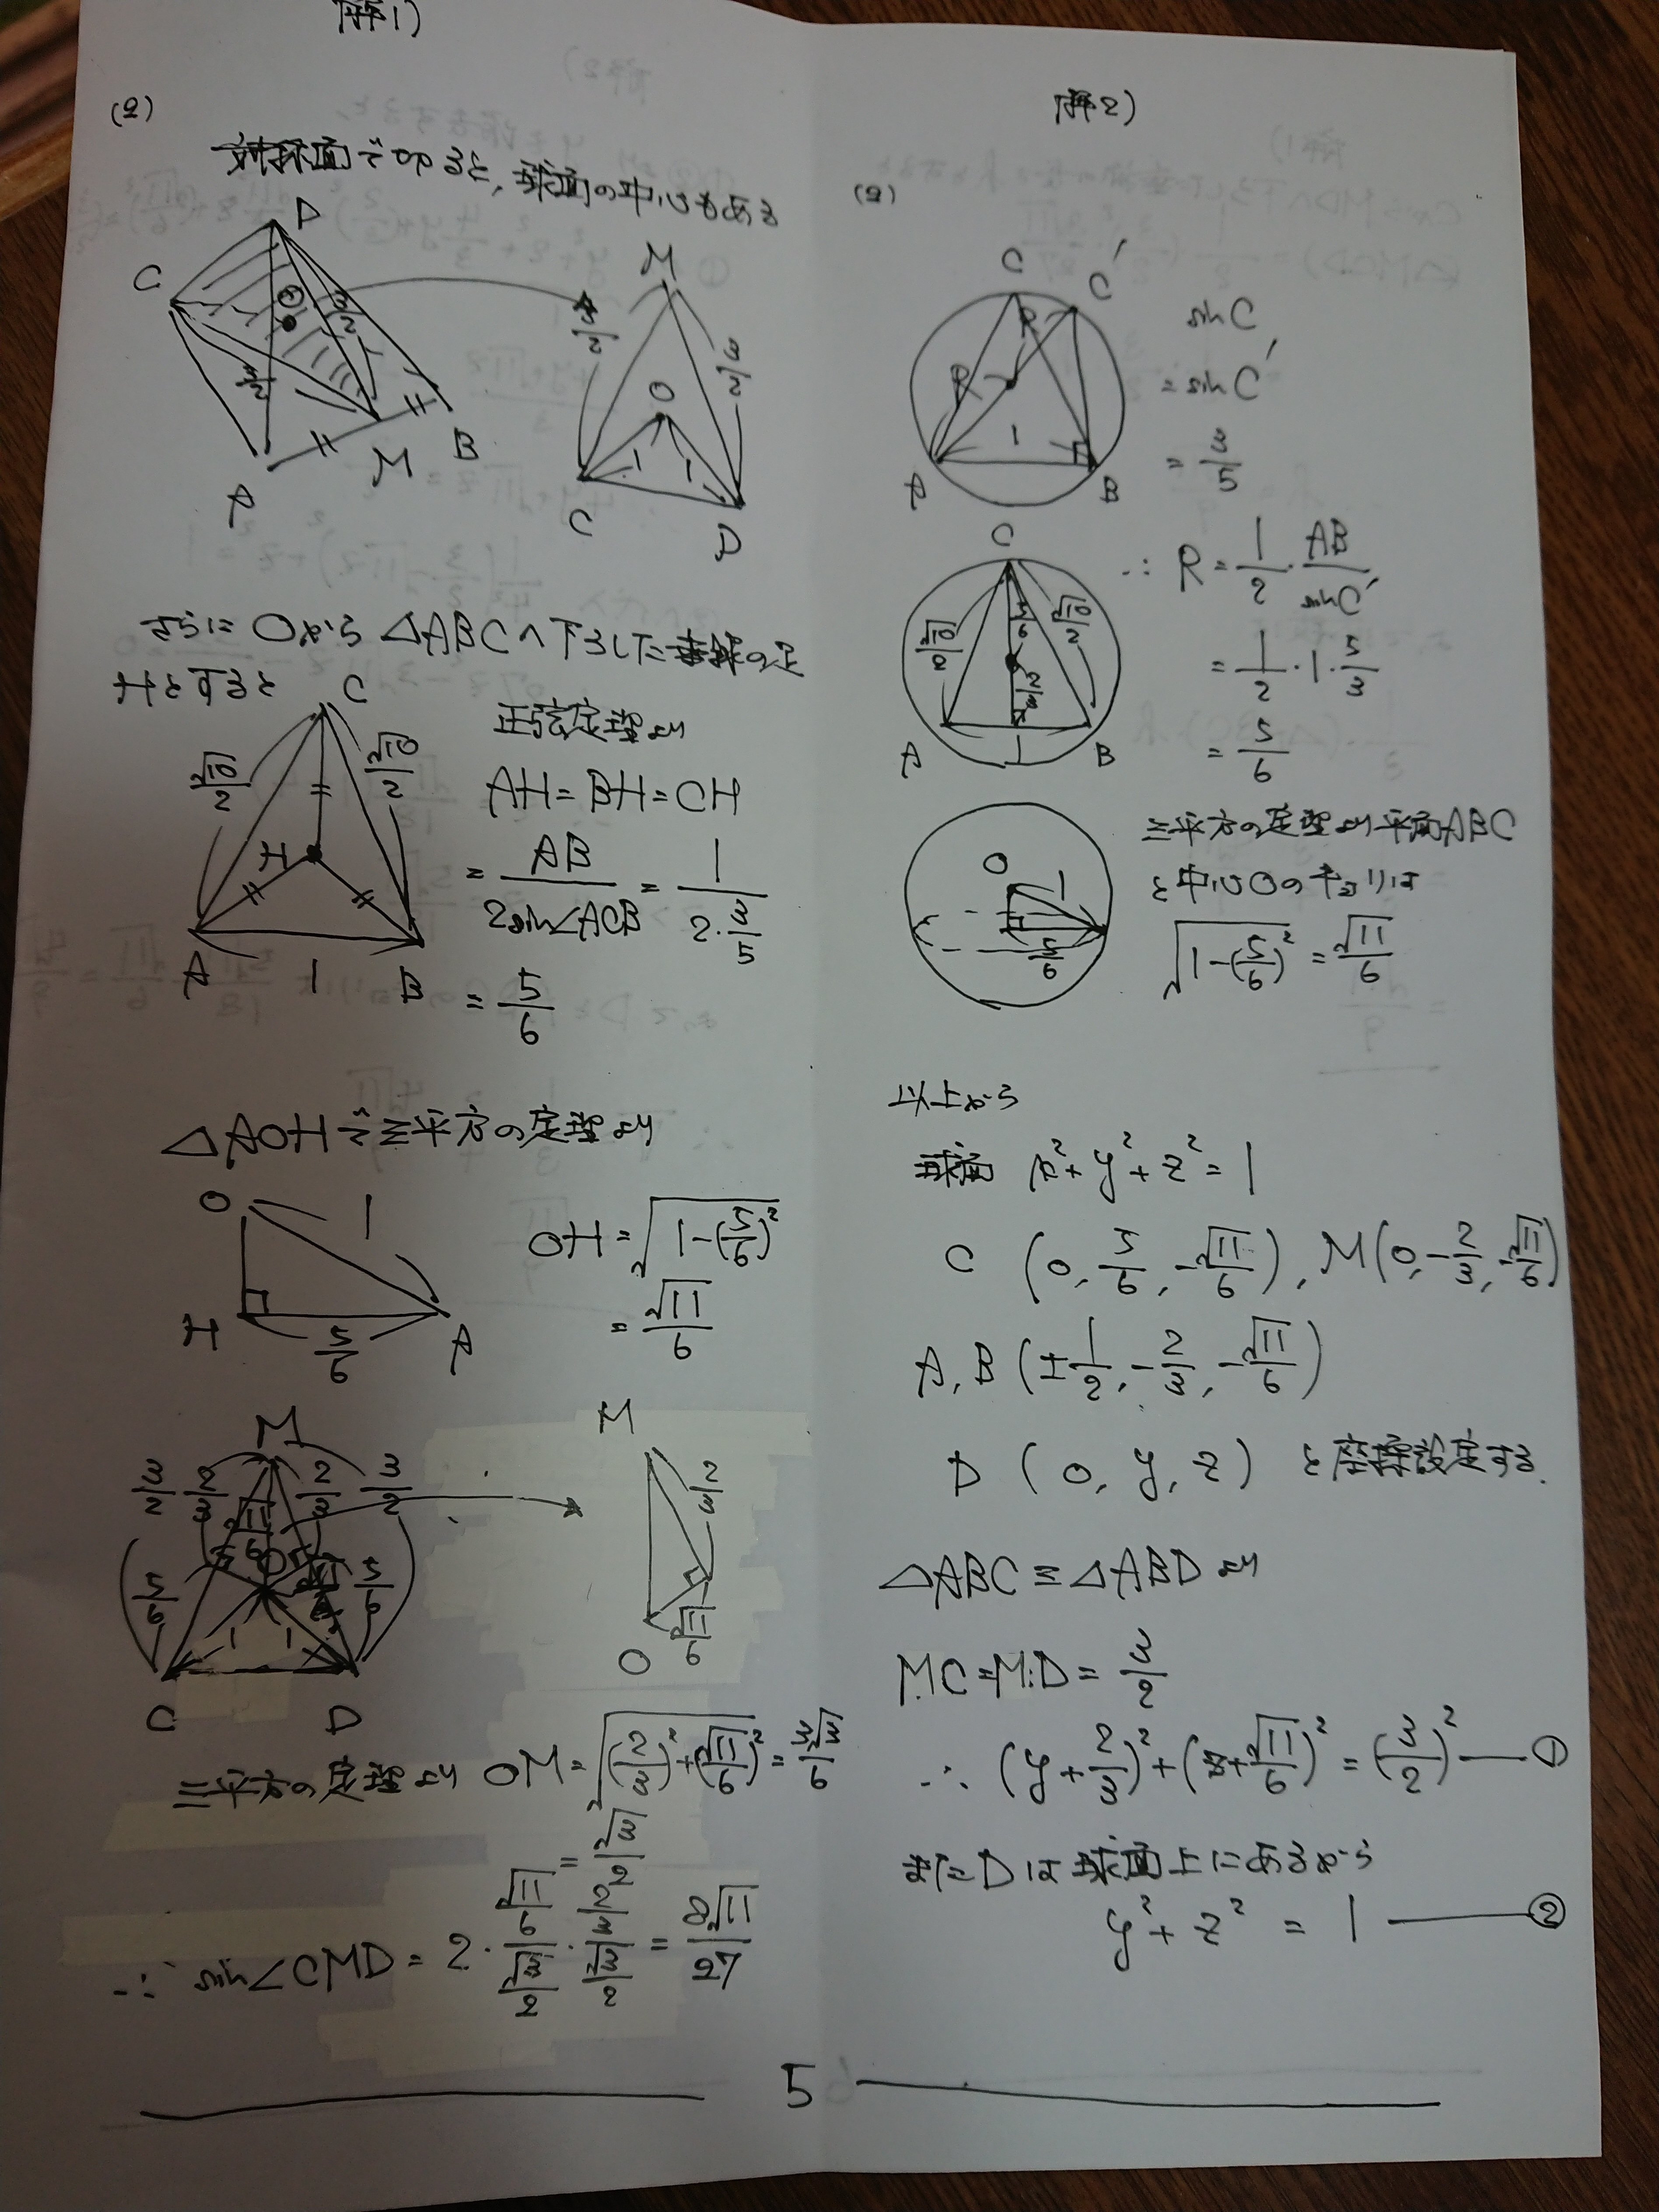 解1)
(2)
対称面で切ると, 球面の中心もある
D
C
O
3/2
3/2
M
B
A
M
3/2
3/2
O
1
1
C
D
さらに Oから △ABCへ下ろした垂線の足
Hとすると
C
√10/2
√10/2
H
A
1
B
正弦定理より
AH=BH=CH
= AB/2sin∠ACB = 1/2・3/5
= 5/6
△AOHで三平方の定理より
O
1
H
5/6
A
OH=√1-(5/6)²
= √11/6
M
3/2
2/3
2/3
3/2
√11/6
O
5/6
5/6
1
1
C
D
M
2/3
O
√11/6
三平方の定理より OM=√(2/3)²+(√11/6)² = 3√3/6
= √3/2
∴ sin∠CMD = 2・(√11/6)/(√3/2)・(2/3)/(√3/2) = 8√11/27
解2)
(2)
C
C'
R
R
1
A
B
sinC
= sinC'
= 3/5
C
√10/2
5/6
√10/2
2/3
A
1
B
∴ R = 1/2・AB/sinC'
= 1/2・1・5/3
= 5/6
O
1
5/6
三平方の定理より平面ABC
と中心Oのキョリは
√1-(5/6)² = √11/6
以上から
球面 x²+y²+z²=1
C (0, 5/6, -√11/6), M(0, -2/3, -√11/6)
A, B (±1/2, -2/3, -√11/6)
D (0, y, z) と座標設定する.
△ABC≡△ABDより
MC=MD= 3/2
∴ (y+2/3)²+(z+√11/6)² = (3/2)² ― ①
またDは球面上にあるから
y²+z² = 1 ― ②
5